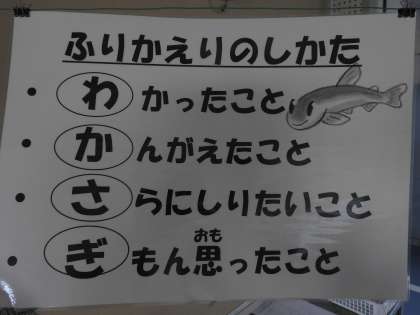 ふりかえりのしかた
・わかったこと
・かんがえたこと
・さらにしりたいこと
・ぎもん思ったこと
おも